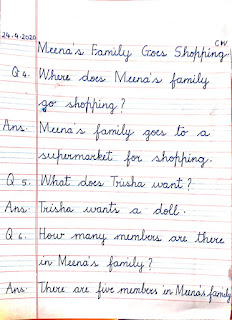 24.4.2020
CW
Meena's Family Goes Shopping
Q 4. Where does Meena's family
go shopping?
Ans. Meena's family goes to a
supermarket for shopping.
Q 5. What does Trisha want?
Ans. Trisha wants a doll.
Q 6. How many members are there
in Meena's family?
Ans. There are five members in Meena's family